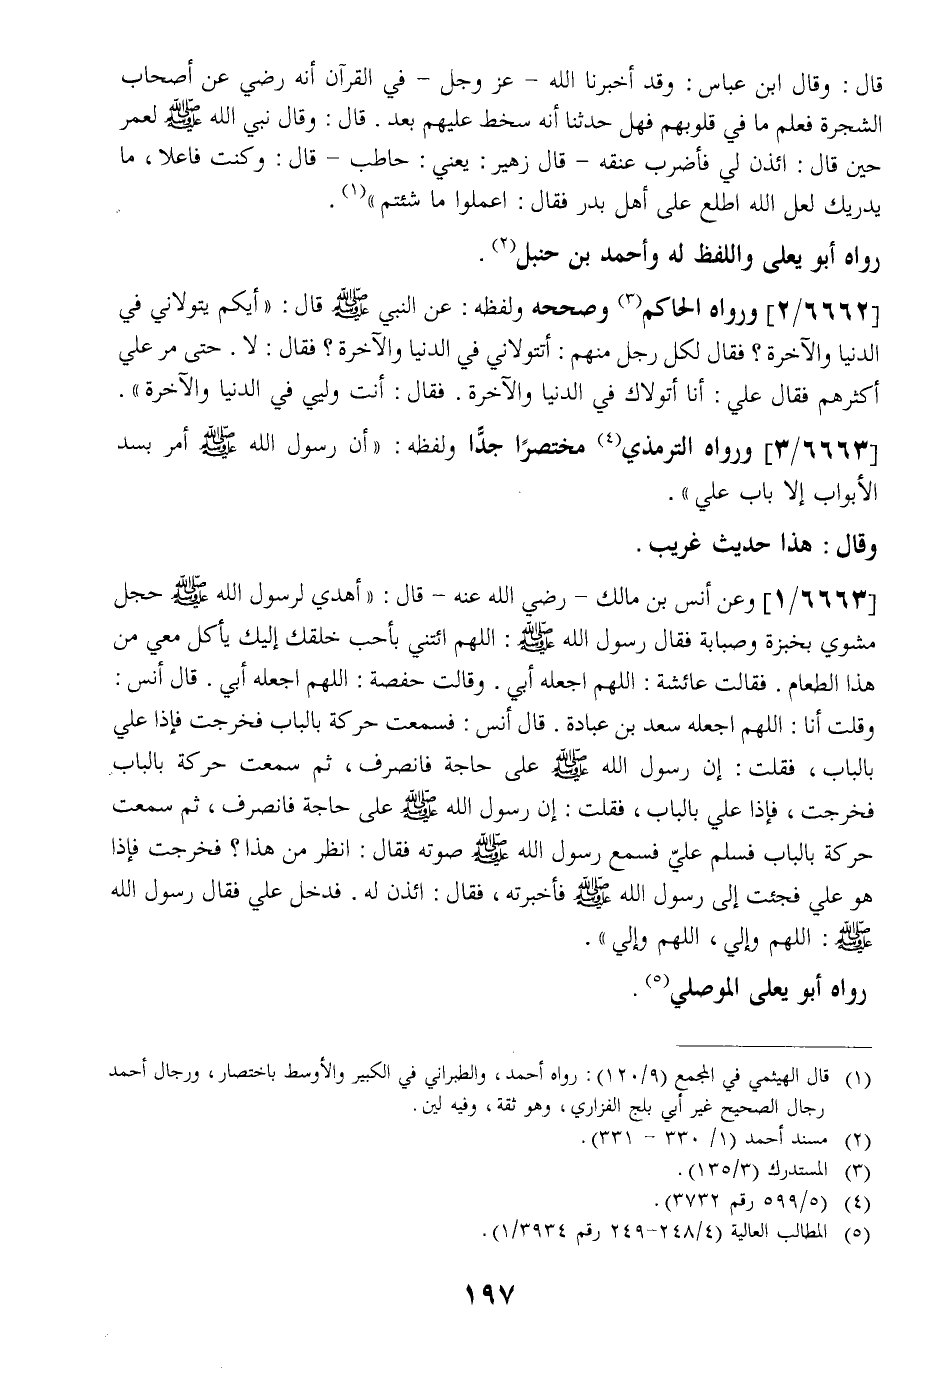 قال : وقال ابن عباس : وقد أخبرنا الله - عز وجل - في القرآن أنه رضي عن أصحاب
الشجرة فعلم ما في قلوبهم فهل حدثنا أنه سخط عليهم بعد . قال : وقال نبي الله ﷺ لعمر
حين قال : ائذن لي فأضرب عنقه - قال زهير : يعني : حاطب - قال : وكنت فاعلا ، ما
يدريك لعل الله اطلع على أهل بدر فقال : اعملوا ما شئتم »(١) .
رواه أبو يعلى واللفظ له وأحمد بن حنبل(٢) .
[٢/٦٦٦٢] ورواه الحاكم(٣) وصححه ولفظه : عن النبي ﷺ قال : « أيكم يتولاني في
الدنيا والآخرة ؟ فقال لكل رجل منهم : أتتولاني في الدنيا والآخرة ؟ فقال : لا . حتى مر علي
أكثرهم فقال علي : أنا أتولاك في الدنيا والآخرة . فقال : أنت وليي في الدنيا والآخرة » .
[٣/٦٦٦٣] ورواه الترمذي(٤) مختصرًا جدًّا ولفظه : « أن رسول الله ﷺ أمر بسد
الأبواب إلا باب علي » .
وقال : هذا حديث غريب .
[١/٦٦٦٣] وعن أنس بن مالك - رضي الله عنه - قال : « أهدي لرسول الله ﷺ حجل
مشوي بخبزة وصبابة فقال رسول الله ﷺ : اللهم ائتني بأحب خلقك إليك يأكل معي من
هذا الطعام . فقالت عائشة : اللهم اجعله أبي . وقالت حفصة : اللهم اجعله أبي . قال أنس :
وقلت أنا : اللهم اجعله سعد بن عبادة . قال أنس : فسمعت حركة بالباب فخرجت فإذا علي
بالباب ، فقلت : إن رسول الله ﷺ على حاجة فانصرف ، ثم سمعت حركة بالباب
فخرجت ، فإذا علي بالباب ، فقلت : إن رسول الله ﷺ على حاجة فانصرف ، ثم سمعت
حركة بالباب فسلم عليّ فسمع رسول الله ﷺ صوته فقال : انظر من هذا ؟ فخرجت فإذا
هو علي فجئت إلى رسول الله ﷺ فأخبرته ، فقال : ائذن له . فدخل علي فقال رسول الله
ﷺ : اللهم وإلي ، اللهم وإلي » .
رواه أبو يعلى الموصلي(٥) .
(١) قال الهيثمي في المجمع (١٢٠/٩) : رواه أحمد ، والطبراني في الكبير والأوسط باختصار ، ورجال أحمد
رجال الصحيح غير أبي بلج الفزاري ، وهو ثقة ، وفيه لين .
(٢) مسند أحمد (١/ ٣٣٠ - ٣٣١) .
(٣) المستدرك (١٣٥/٣) .
(٤) (٥٩٩/٥ رقم ٣٧٣٢) .
(٥) المطالب العالية (٢٤٨/٤-٢٤٩ رقم ١/٣٩٣٤) .
١٩٧